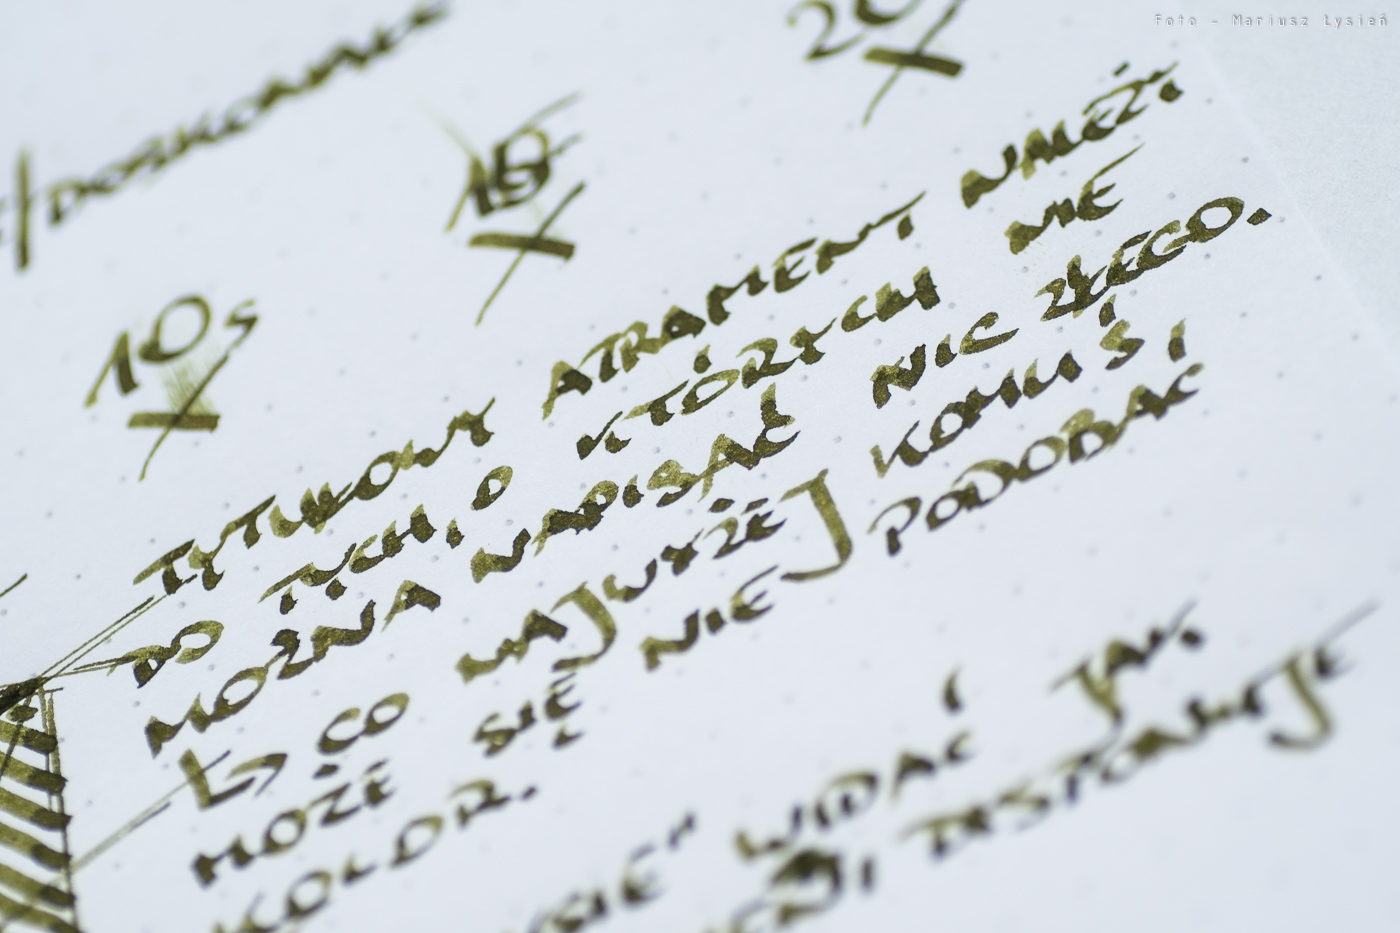 Foto - Mariusz Łysień
DOSKONALE
20
15
10s
TYTUŁOWY ATRAMENT NALEŻY
DO TYCH, O KTÓRYCH NIE
MOŻNA NAPISAĆ NIC ZŁEGO.
CO NAJWYŻEJ KOMUŚ I
MOŻE SIĘ NIE PODOBAĆ
KOLOR.
WIDAĆ I JAK
TESTOWUJE